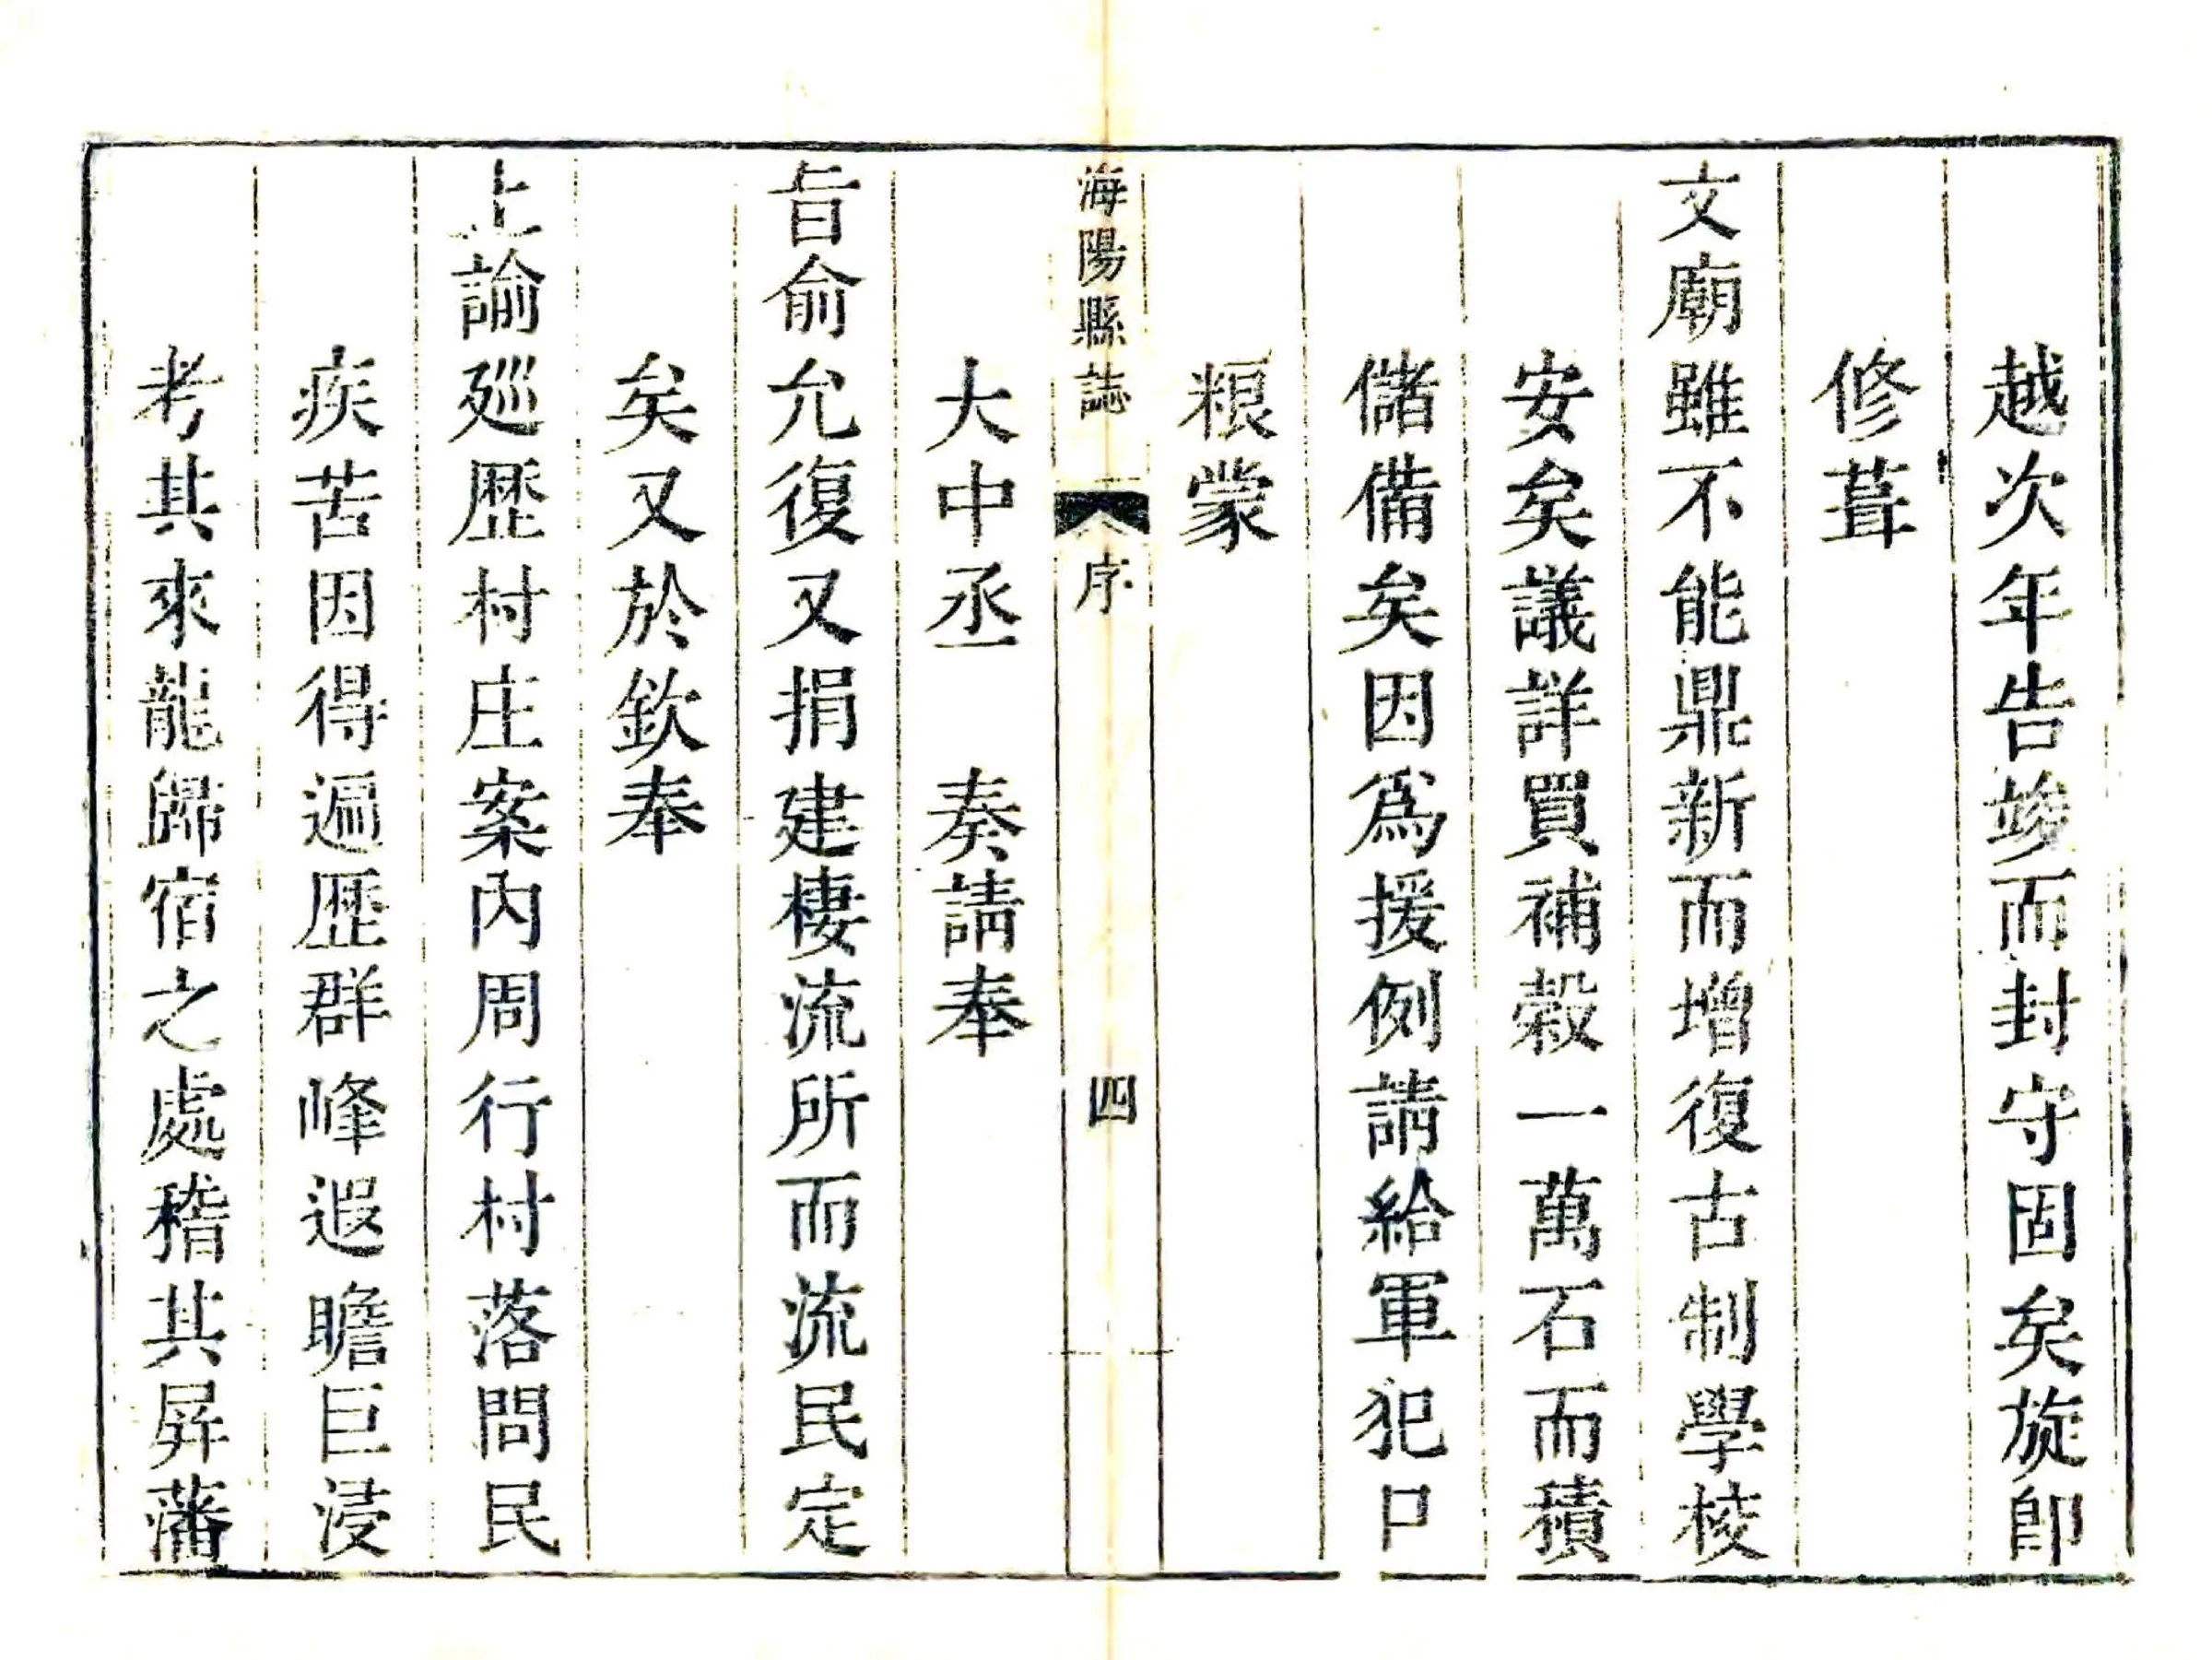 越次年告竣而封守固矣旋卽
修葺
文廟雖不能鼎新而增復古制學校
安矣議詳買補穀一萬石而積
儲備矣因爲援例請給軍犯口
粮蒙
海陽縣誌 序 四
大中丞 奏請奉
旨俞允復又捐建棲流所而流民定
矣又於欽奉
上諭廵歷村庄案內周行村落問民
疾苦因得遍歷群峰遐瞻巨浸
考其來龍歸宿之處稽其屏藩